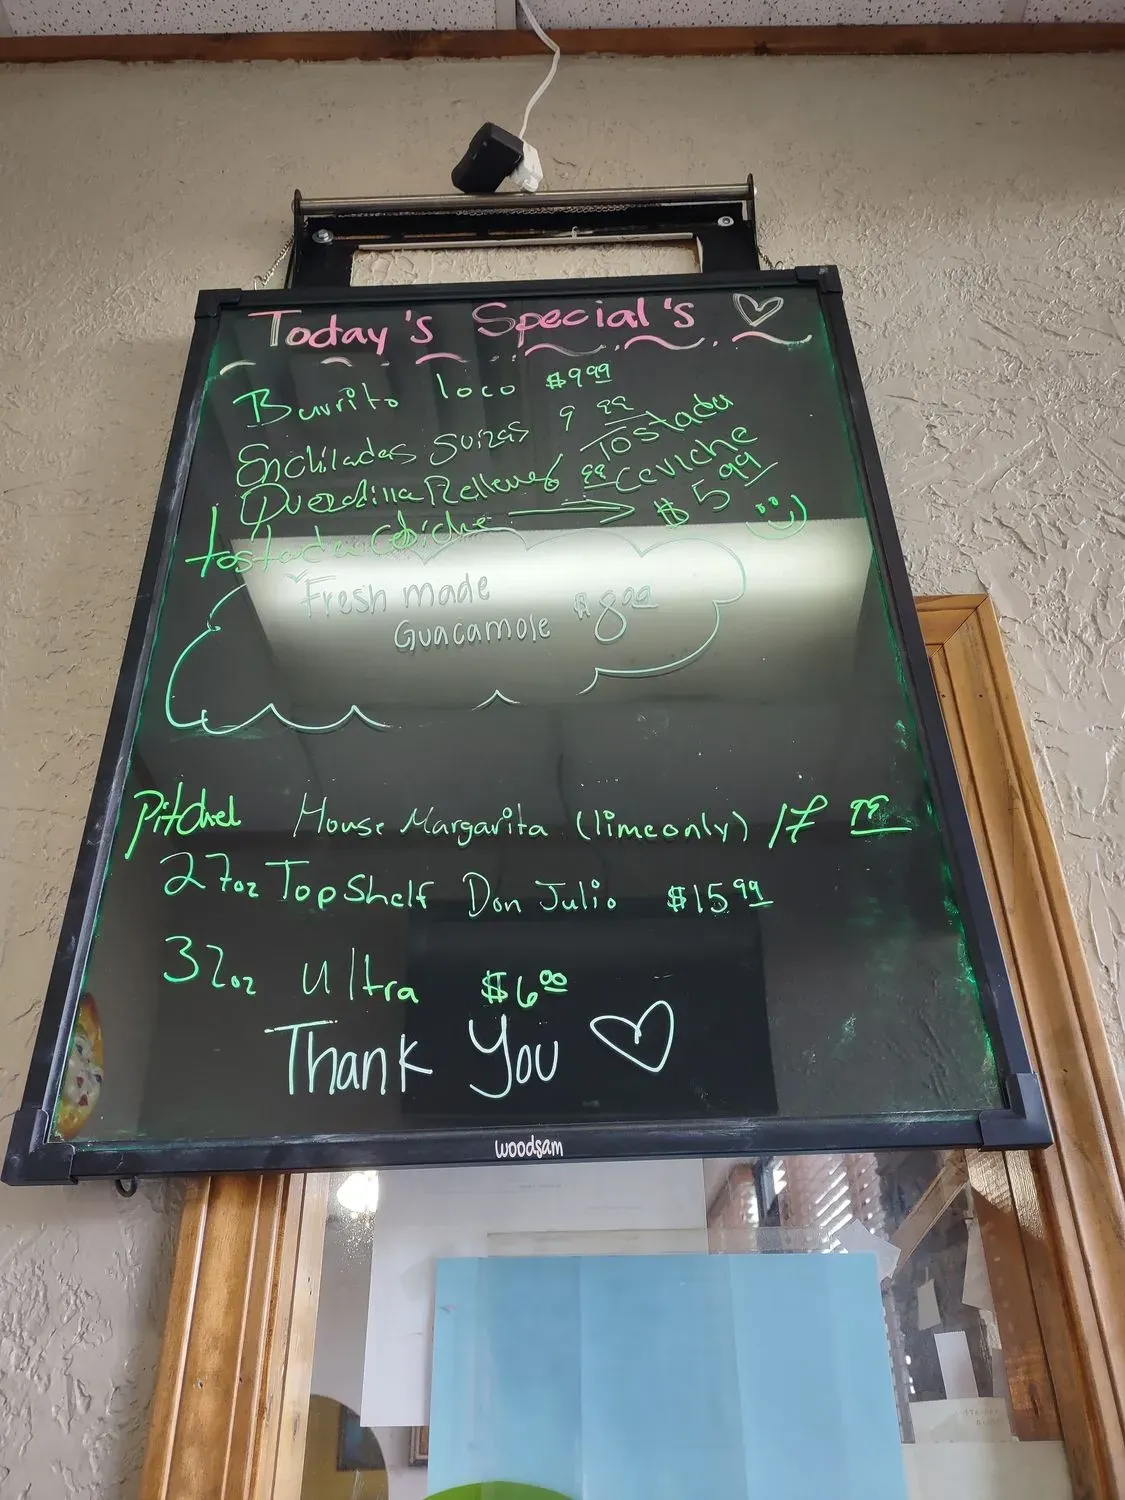 Today's Special's
Burrito loco $9.99
Enchiladas Suizas 9 99
Tostada
Ceviche
$5 99
99
tostada
Fresh made
Guacamole $8.00
Pitcher House Margarita (lime only) 17 99
27oz Top Shelf Don Julio $15 99
32oz Ultra $6 00
Thank You
woodsam